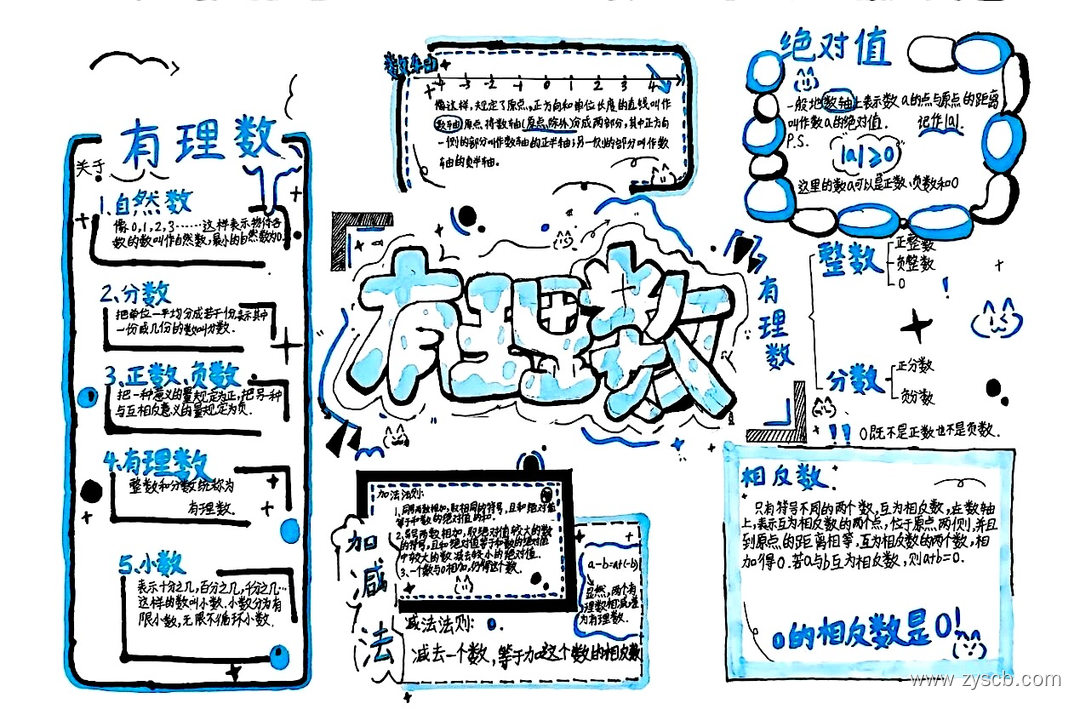 有理数
关于
1.自然数
像0,1,2,3……这样表示物件个
数的数叫作自然数,最小的自然数为0.
2、分数
把单位一平均分成若干份,表示其中
一份或几份的数叫分数.
3.正数、负数
把一种意义的量规定为正,把另一种
与互相反意义的量规定为负.
4.有理数
整数和分数统称为
有理数.
5.小数
表示十分之几,百分之几,千分之几…
这样的数叫小数.小数分为有
限小数,无限不循环小数.
数轴
-4 -3 -2 -1 0 1 2 3 4
像这样,规定了原点、正方向和单位长度的直线叫作
数轴.原点将数轴(原点除外)分成两部分,其中正方向
一侧的部分叫作数轴的正半轴;另一侧的部分叫作数
轴的负半轴.
绝对值
一般地,数轴上表示数a的点与原点的距离
叫作数a的绝对值. 记作|a|.
P.S.
|a|≥0
这里的数a可以是正数、负数和0
有理数
有理数
整数
正整数
负整数
0
分数
正分数
负分数
!! 0既不是正数也不是负数.
加减法
加法法则:
1.同号两数相加,取相同的符号,且和绝对值
等于和数的绝对值的和.
2.异号两数相加,取绝对值较大的数
的符号,且和绝对值等于和数的绝对值
中较大的数减去较小的绝对值.
3.一个数与0相加,仍得这个数.
a-b=a+(-b)
显然,两个有
理数相减,差
为有理数.
减法法则:
减去一个数,等于加这个数的相反数
相反数
只有符号不同的两个数,互为相反数,在数轴
上,表示互为相反数的两个点,位于原点两侧,并且
到原点的距离相等,互为相反数的两个数,相
加得0.若a与b互为相反数,则a+b=0.
0的相反数是0!
www.zyscb.com